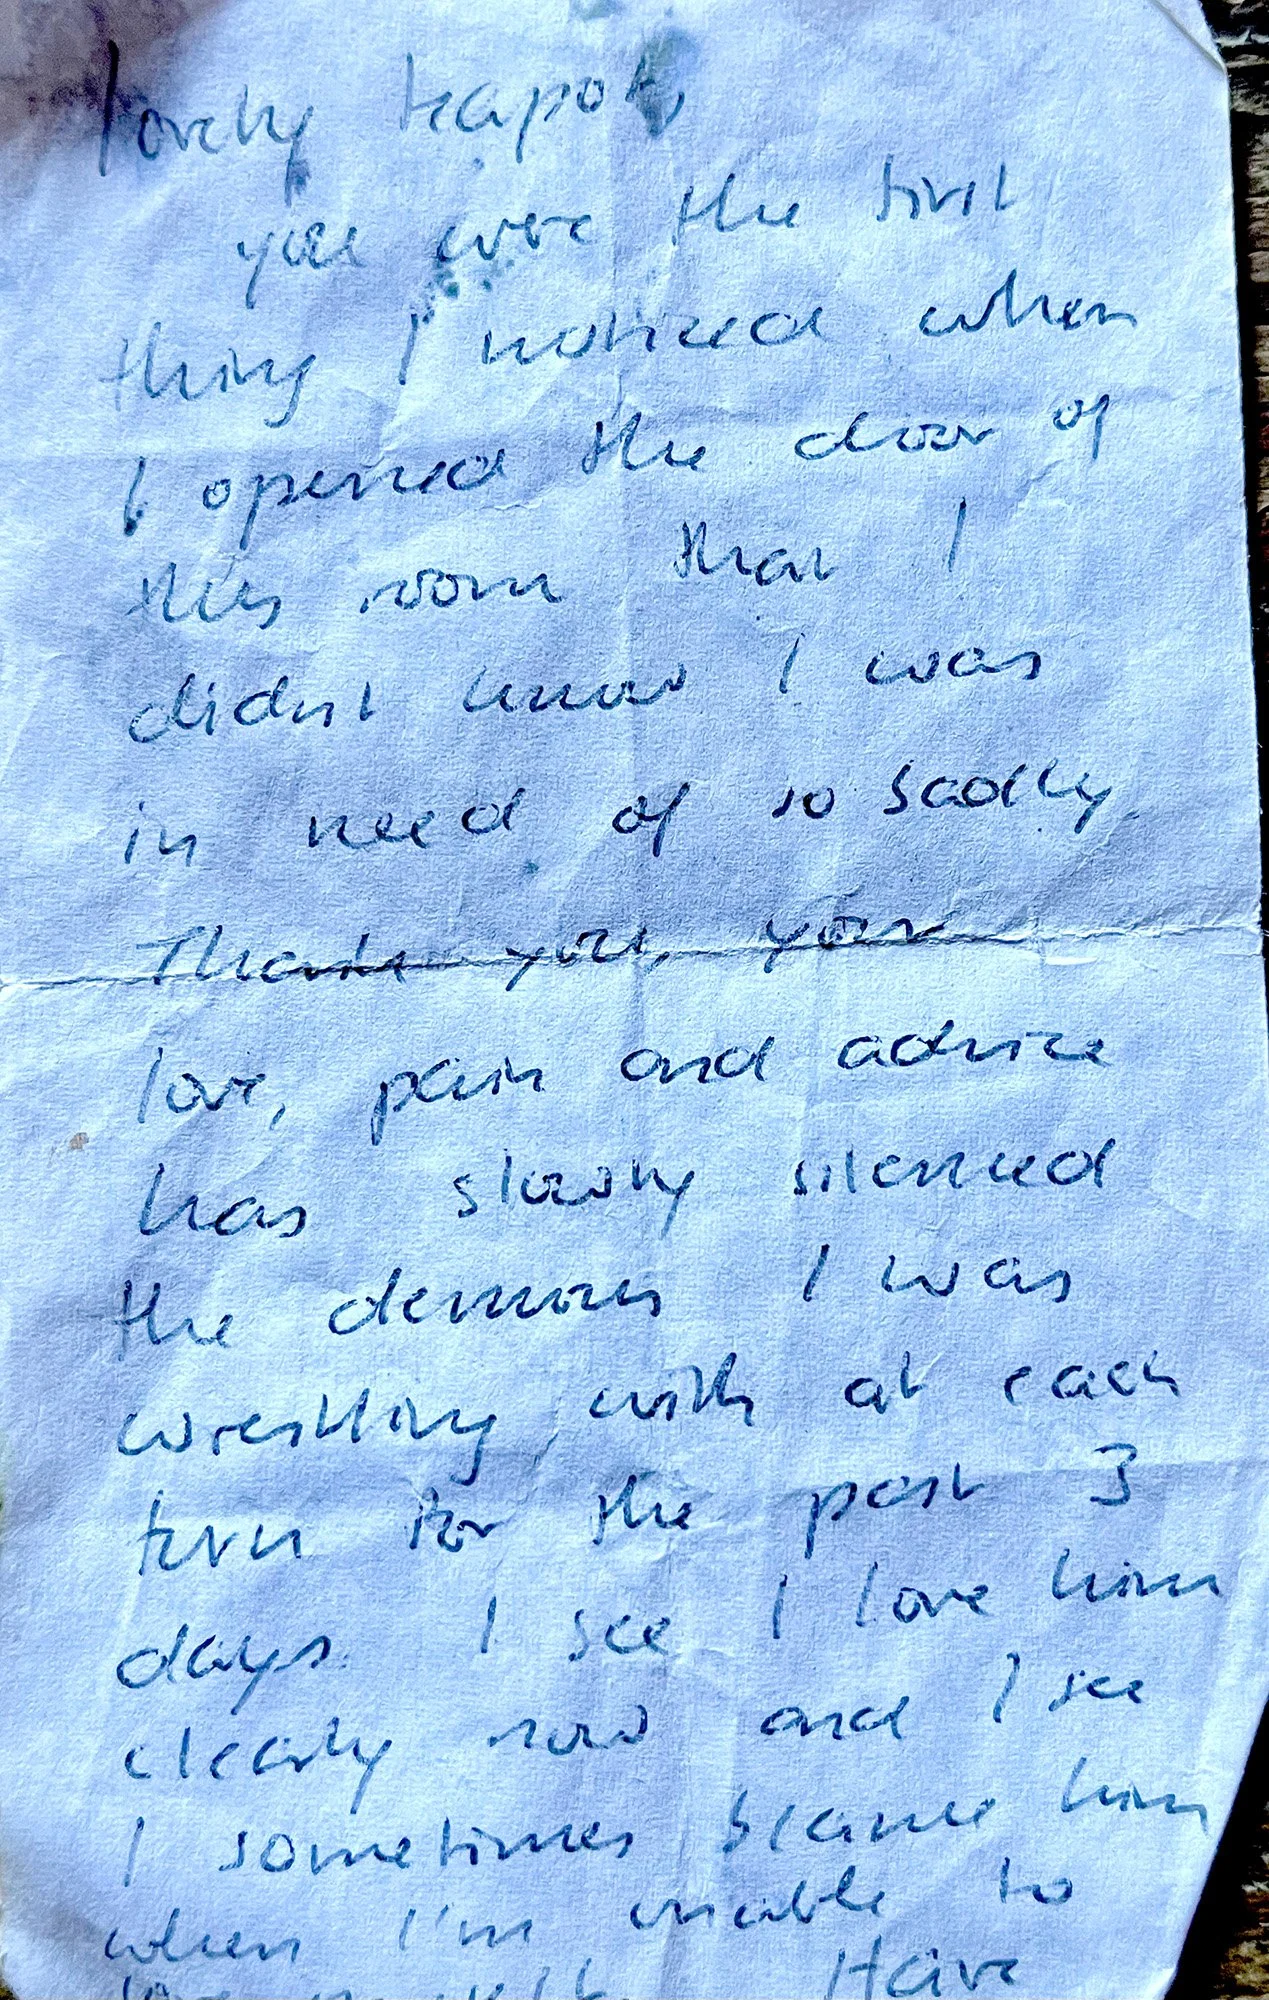 lovely teapot,
you were the first
thing I noticed when
I opened the door of
this room that I
didnt know I was
in need of so sadly
Thank you, your
love, pain and advice
has slowly silenced
the demons I was
wrestling with at each
turn for the past 3
days. I see I love him
clearly now and I see
I sometimes blame him
when I'm unable to
love myself. Have